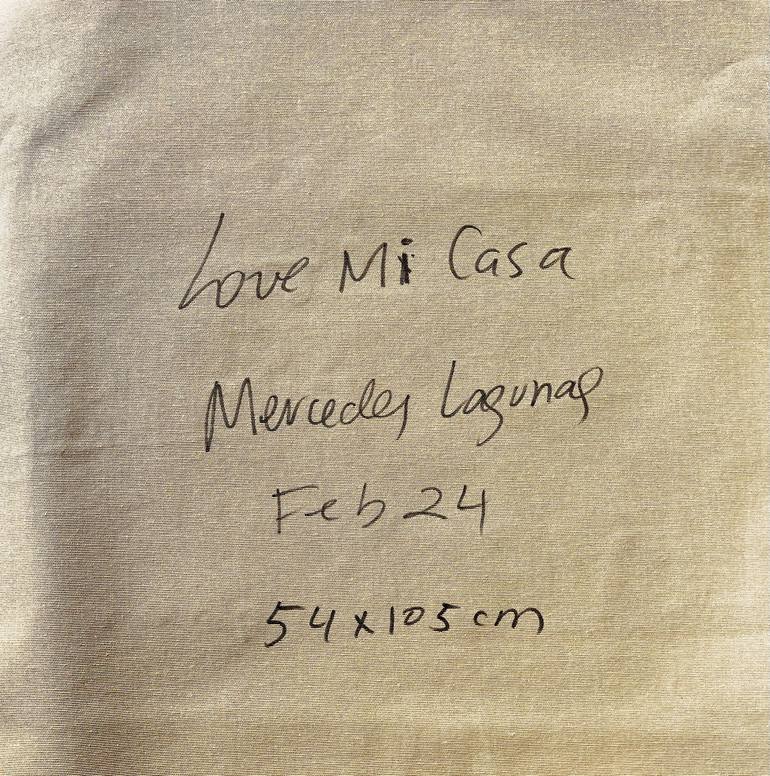 Love Mi Casa
Mercedes Lagunas
Feb 24
54x105cm